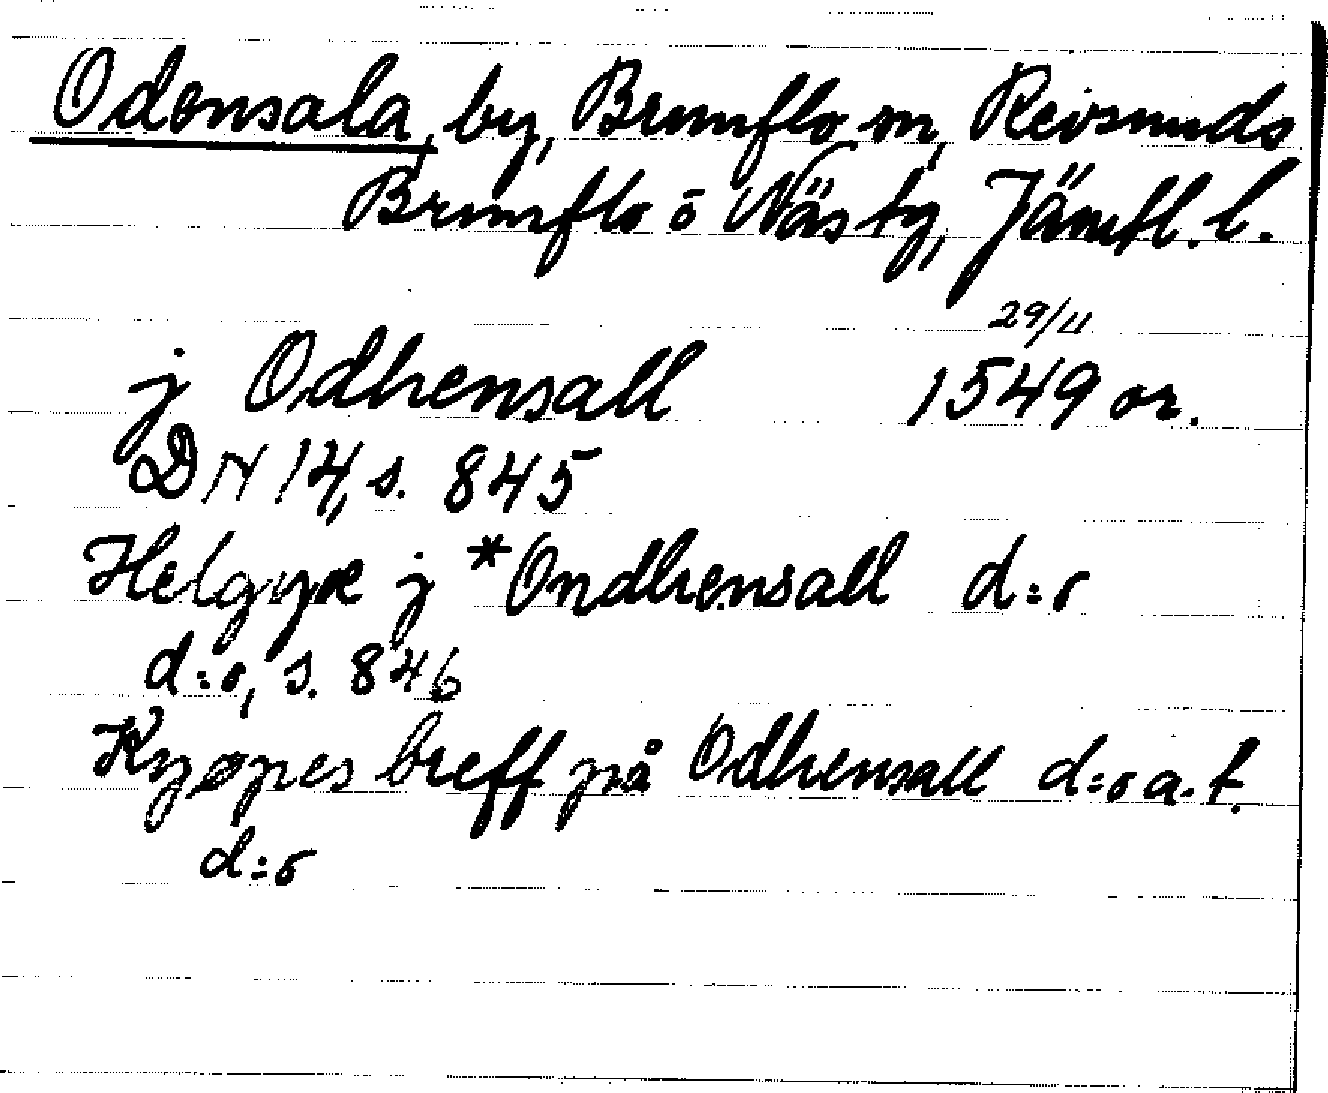 Odensala, by, Brunflo sn, Revsunds
Brunflo o Näs tg, Jämtl. l.
29/11
j Odhensall 1549 or.
DN 14, s. 845
Helgyæ j *Ondhensall d:o
d:o, s. 846
Kyøpes breff på Odhensall d:o a.t.
d:o